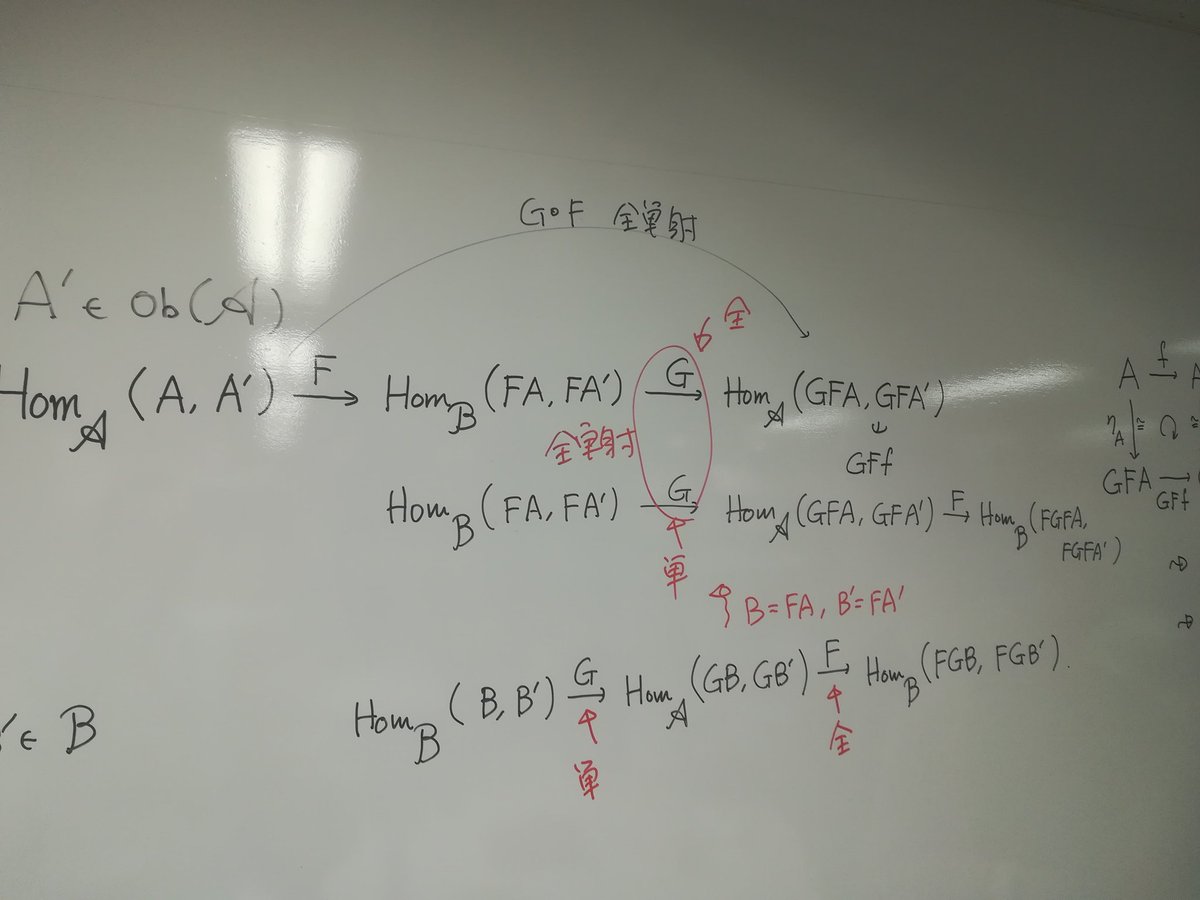 G∘F 全単射
A' ∈ Ob(𝒜)
全
Hom_𝒜(A, A') →F Hom_B(FA, FA') →G Hom_𝒜(GFA, GFA')
↓
GFf
全単射
Hom_B(FA, FA') →G Hom_𝒜(GFA, GFA') →F Hom_B(FGFA, FGFA')
単
B=FA, B'=FA'
Hom_B(B, B') →G Hom_𝒜(GB, GB') →F Hom_B(FGB, FGB').
単
全
' ∈ B
A →f
η_A ↓ ≅ ↻ ≅
GFA →GFf